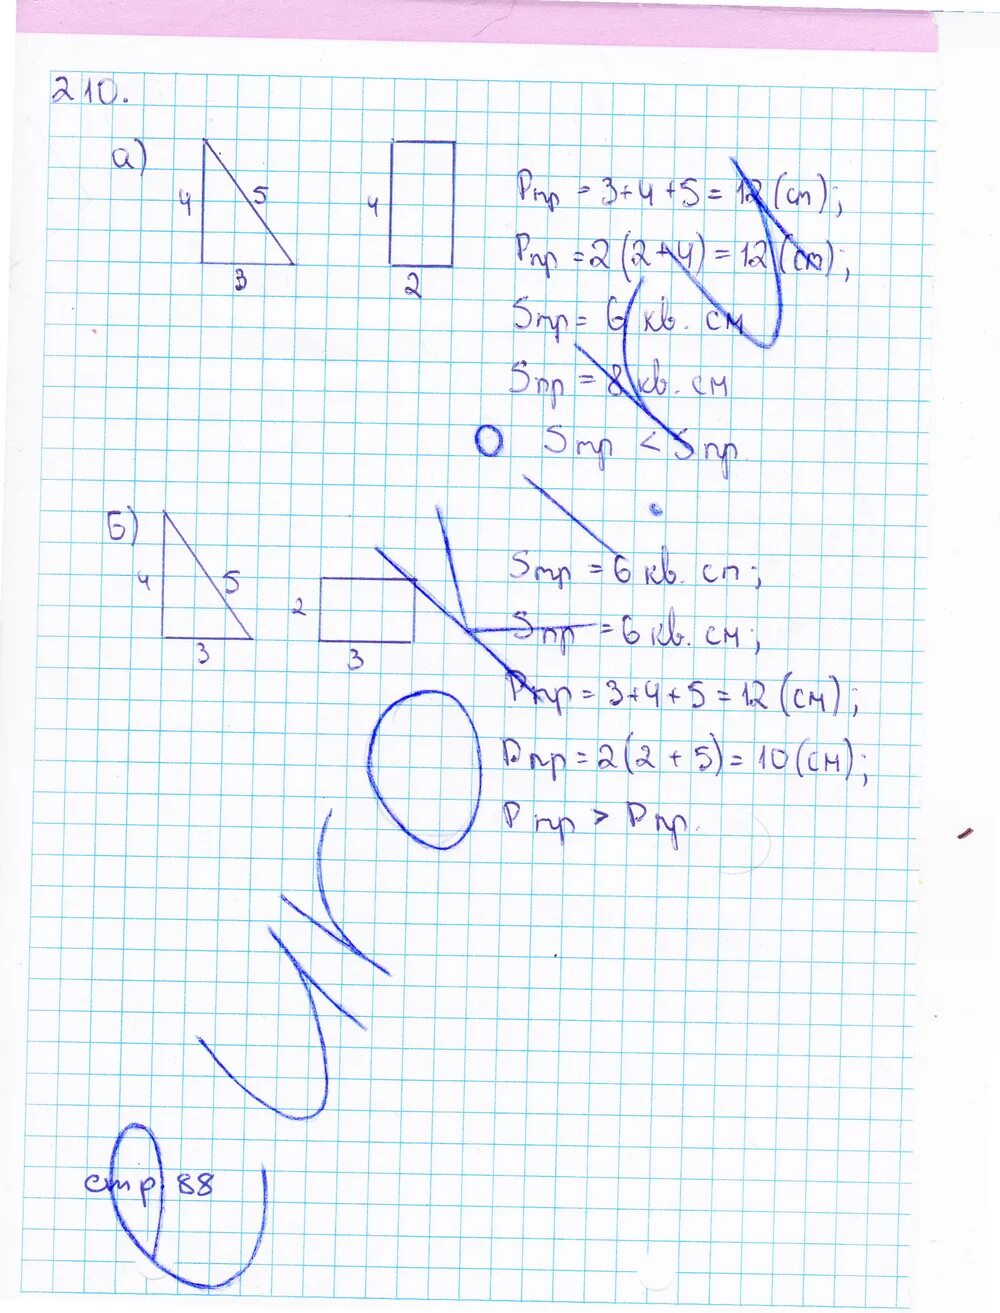 210.
а)
4 5 3
4 2
Pтр = 3+4+5 = 12 (см);
Pпр = 2(2+4) = 12 (см);
Sтр = 6 кв. см
Sпр = 8 кв. см
Sтр < Sпр.
б)
4 5 3
2 3
Sтр = 6 кв. см;
Sпр = 6 кв. см;
Pтр = 3+4+5 = 12 (см);
Pпр = 2(2 + 5) = 10 (см);
Pтр > Pпр.
стр. 88